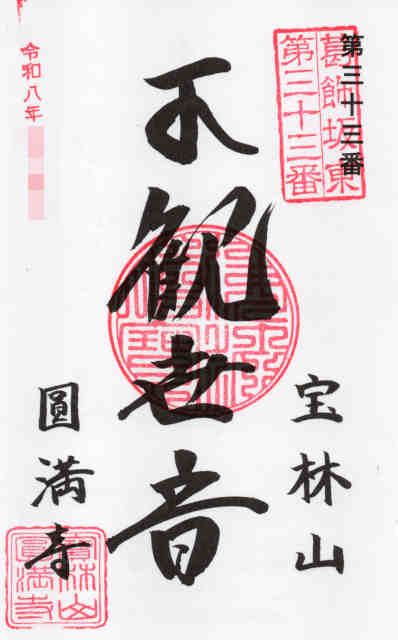 第三十三番
葛飾坂東
第三十二番
宝林山
観世音
圓満寺
寳林山
圓満寺
令和八年